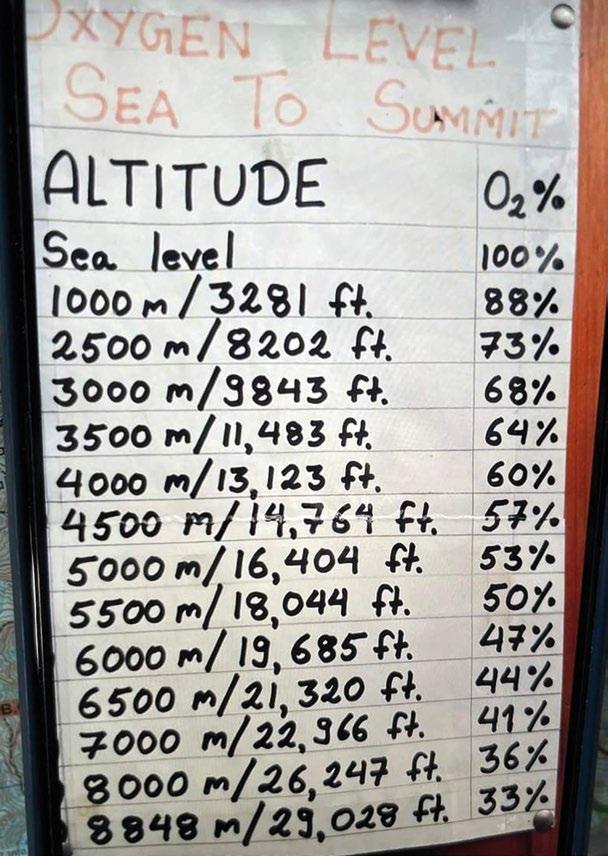 OXYGEN LEVEL
SEA TO SUMMIT
ALTITUDE O₂%
Sea level 100%
1000 m/3281 ft. 88%
2500 m/8202 ft. 73%
3000 m/9843 ft. 68%
3500 m/11,483 ft. 64%
4000 m/13,123 ft. 60%
4500 m/14,764 ft. 57%
5000 m/16,404 ft. 53%
5500 m/18,044 ft. 50%
6000 m/19,685 ft. 47%
6500 m/21,320 ft. 44%
7000 m/22,966 ft. 41%
8000 m/26,247 ft. 36%
8848 m/29,028 ft. 33%